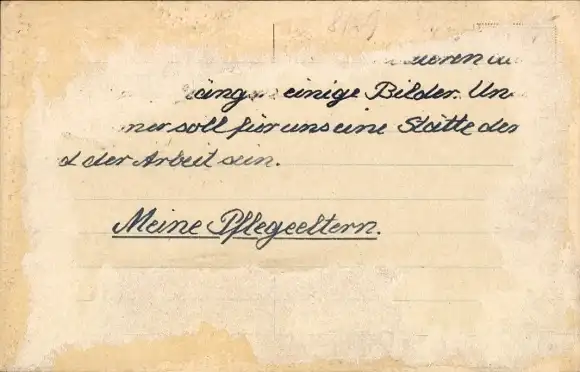 einige Bilder. Un
ner soll für uns eine Stätte der
d der Arbeit sein.
Meine Pflegeeltern.